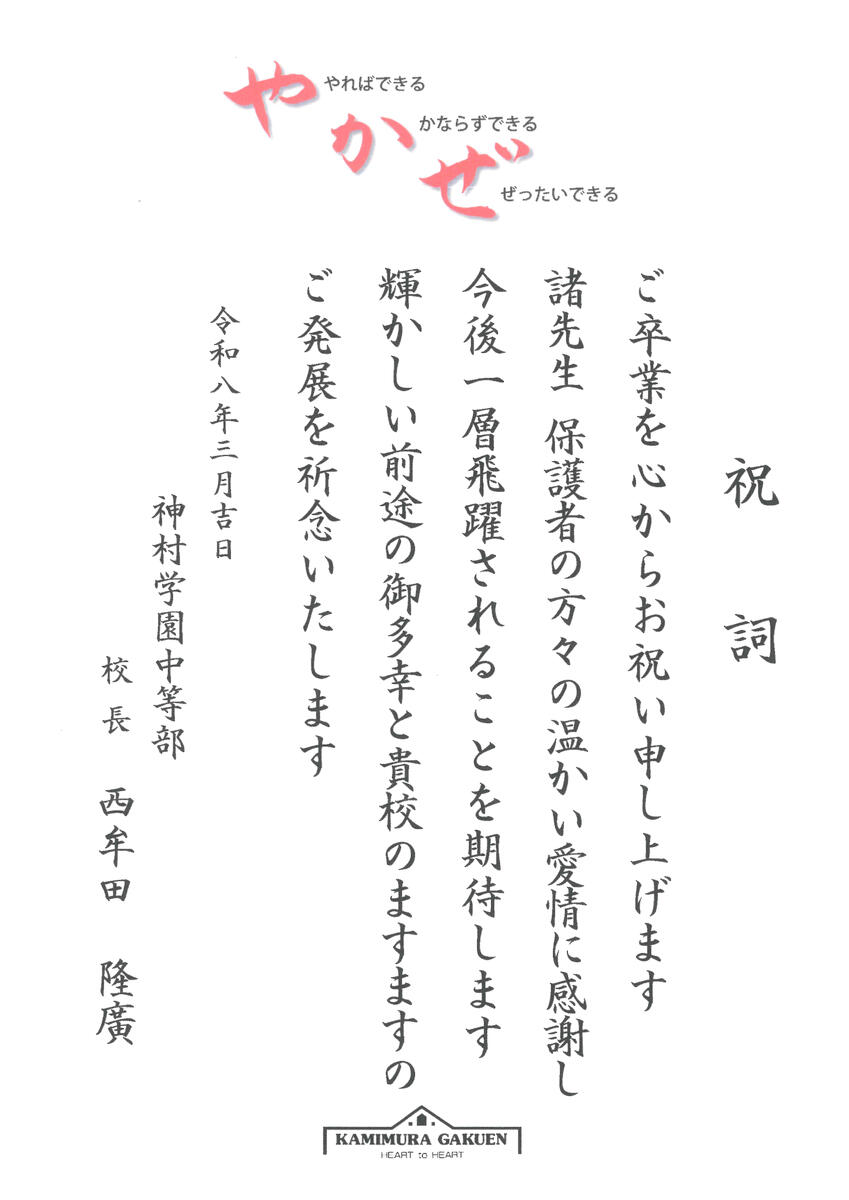 や やればできる
か かならずできる
ぜ ぜったいできる
祝詞
ご卒業を心からお祝い申し上げます
諸先生 保護者の方々の温かい愛情に感謝し
今後一層飛躍されることを期待します
輝かしい前途の御多幸と貴校のますますの
ご発展を祈念いたします
令和八年三月吉日
神村学園中等部
校長 西牟田 隆廣
KAMIMURA GAKUEN
HEART to HEART